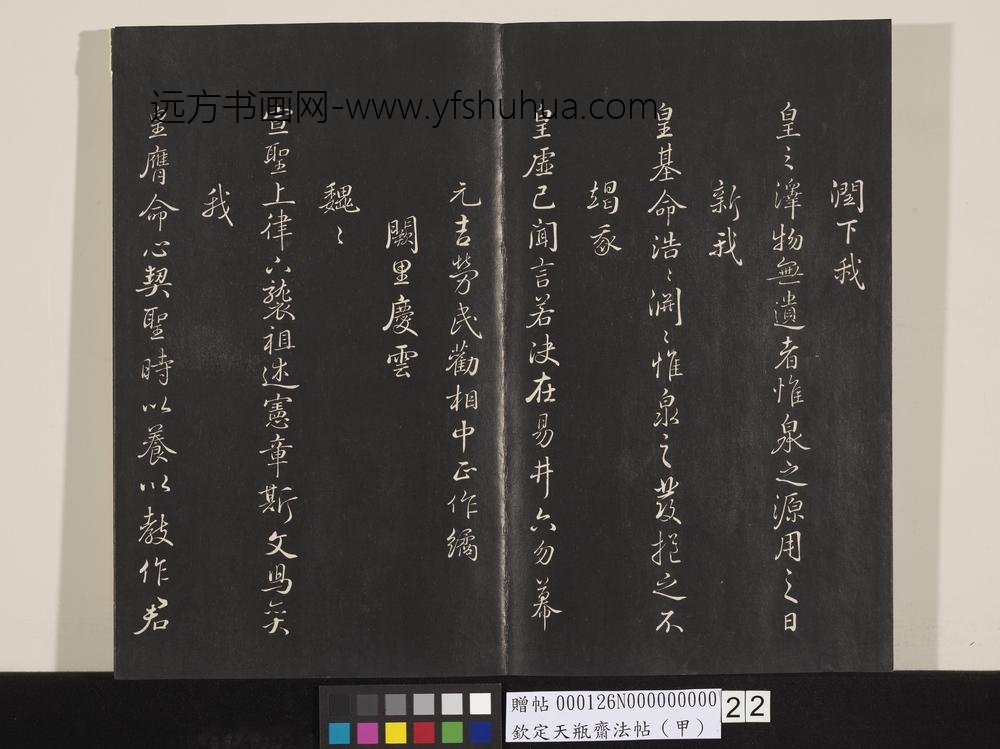 潤下我
皇〻澤物無遺者惟泉之源用之日
新我
皇基命浩〻淵〻惟泉之發挹之不
竭我
皇虛己聞言若決在易井六勿幕
元吉勞民勸相中正作繘
闕里慶雲
巍〻
宣聖上律下襲祖述憲章斯文
我
皇膺命心契聖時以養以教作君
远方书画网-www.yfshuhua.com
贈帖 000126N000000000
22
欽定天瓶齋法帖（甲）